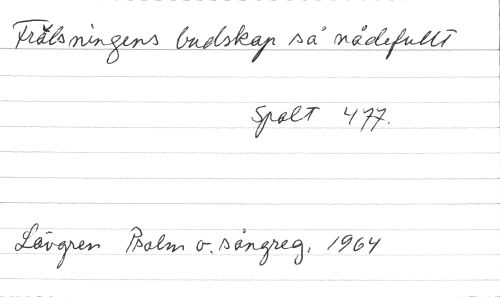 Frälsningens budskap så nådefullt
Spalt 477.
Lövgren Psalm o. sångreg. 1964